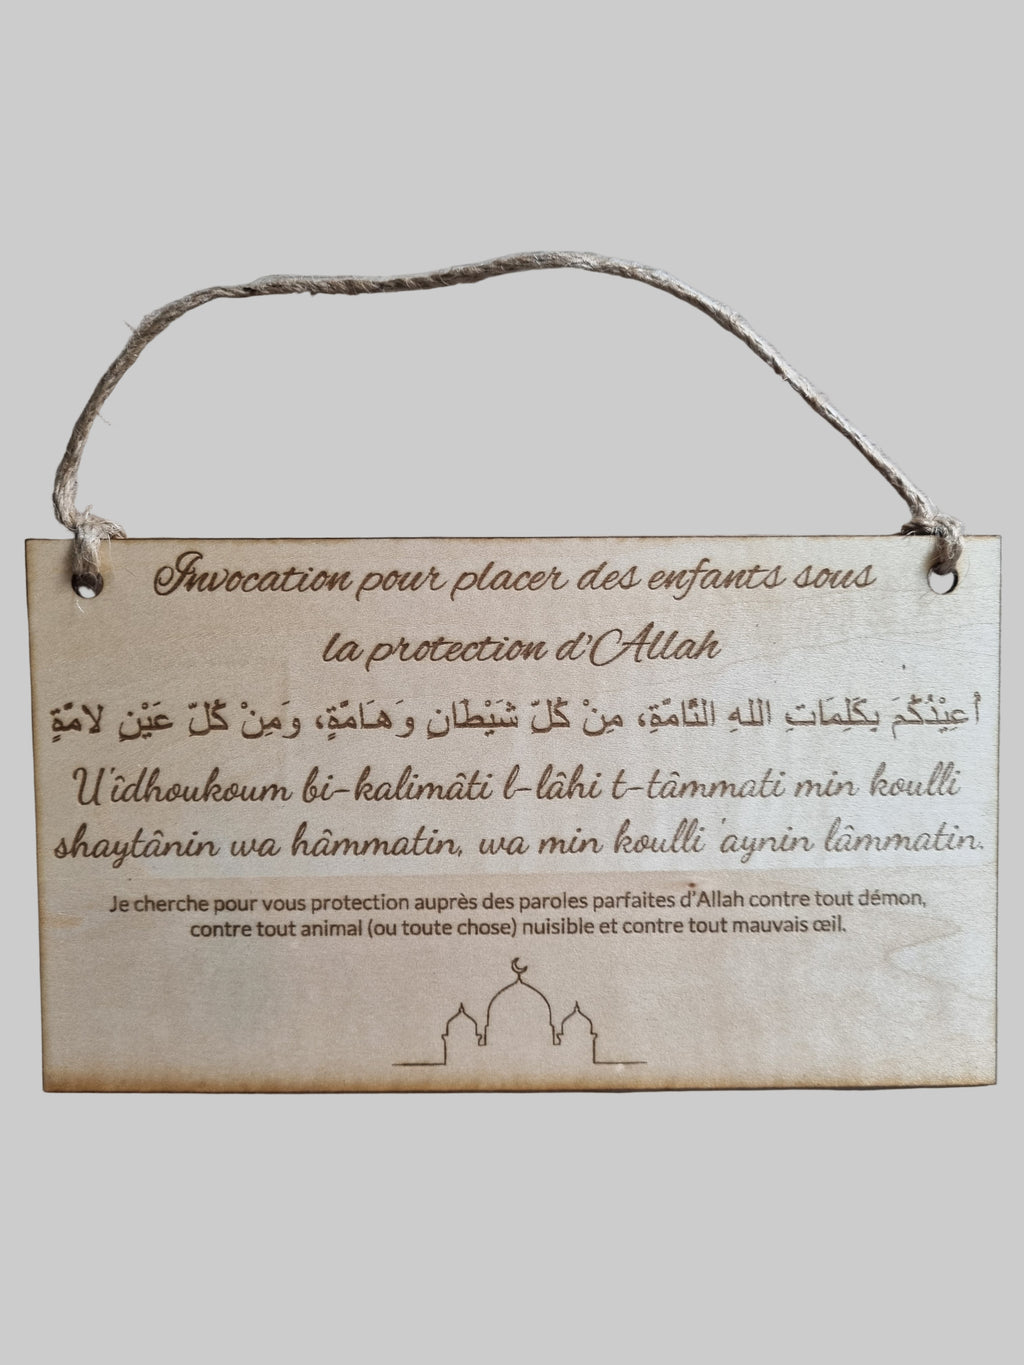 Invocation pour placer des enfants sous
la protection d'Allah
أُعِيْذُكُمَ بِكَلِمَاتِ اللهِ التَّامَّةِ، مِنْ كُلِّ شَيْطَانٍ وَهَامَّةٍ، وَمِنْ كُلِّ عَيْنٍ لامَّةٍ
U'îdhoukoum bi-kalimâti l-lâhi t-tâmmati min koulli
shaytânin wa hâmmatin, wa min koulli 'aynin lâmmatin.
Je cherche pour vous protection auprès des paroles parfaites d'Allah contre tout démon,
contre tout animal (ou toute chose) nuisible et contre tout mauvais œil.